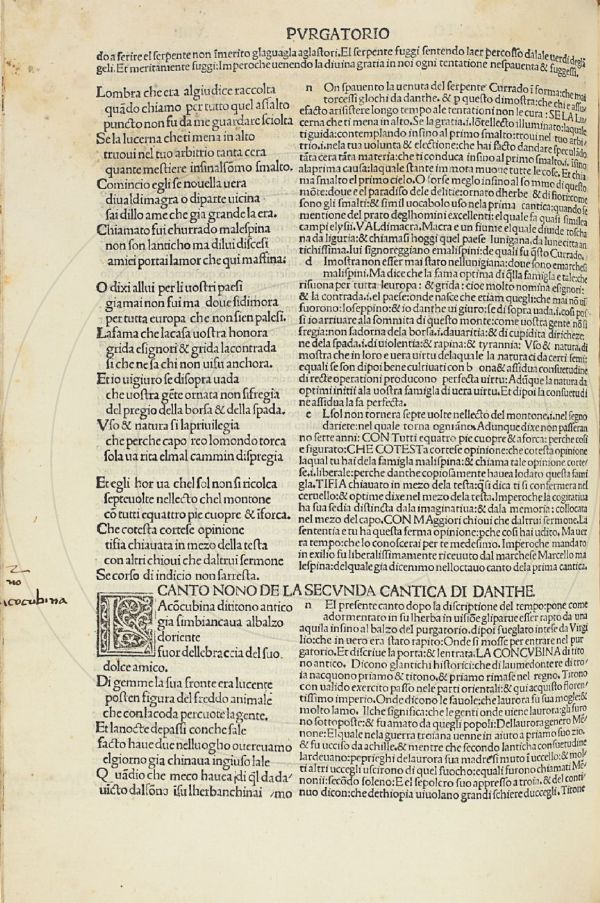 PVRGATORIO
do a ferire el serpente non ímerito gla guagla agla stori. El serpente fuggi sentendo laer percosso da lale uerdi degli
geli. Et meritamente fuggi: Imperoche uenendo la diuina gratia in noi ogni tentatione nespauenta & fuggesi.
Lombra che era al giudice raccolta
quādo chiamo per tutto quel assalto
puncto non fu da me guardare sciolta
Se la lucerna che ti mena in alto
truoui nel tuo arbitrio tanta cera
quante mestiere infinalsommo smalto.
Comincio egli se nouella uera
di ualdimagra o di parte uicina
sai dillo ame che gia grande la era.
Chiamato fui churrado malespina
non son lanticho ma di lui discesi
amiei portai lamor che qui raffina:
O dixi allui per li uostri paesi
giamai non fui ma doue si dimora
per tutta europa che non sien palesi.
La fama che la casa uostra honora
grida esignori & grida la contrada
si che ne sa chi non uifu anchora.
Et io ui giuro se disopra uada
che uostra gēte ornata non si fregia
del pregio della borsa & della spada.
Vso & natura si la priuilegia
che perche capo reo lo mondo torca
sola ua rita el mal cammin dispregia
Et egli hor ua chel sol non si ricolca
septe uolte nellecto chel montone
cō tutti quattro pie cuopre & iforca.
Che cotesta cortese opinione
ti fia chiauata in mezo della testa
con altri chioui che daltrui sermone
Se corso di iudicio non sarresta.
n On spauento la uenuta del serpente Currado í forma: che mai
torcessi glochi da danthe. & p questo dimostra: che chi e assue
efacto a resistere longo tempo ale tentationi non le cura: SE LA LV
cerna che ti mena in alto. Se la gratia. i. lōtellecto illuminato: laquale
ti guida: contemplando insino al primo smalto: truoui nel tuo arbi
trio. i. nela tua uolunta & electione: che hai facto dandare speculādo
tāta cera tāta materia: che ti conduca insino al primo smalto. i. insino
ala prima causa: laquale stante immota muone tutte le cose. Et chia
ma smalto el primo cielo. O forse meglo insino al sommo di questo
mōte: doue e el paradiso dele delitie: ornato dherbe & di fiori: come
sono gli smalti: & simil uocabolo uso nela prima cantica: quando fe
mentione del prato deglhomini excellenti: el quale fa quasi simile a
campi elysii. VAL di macra. Macra e un fiume el quale diuide tosca
na da liguria: & chiamasi hoggi quel paese lunigana, da lune citta an
tichissima. lui signoreggiano e malispini: de quali fu q̄sto Currado.
d Imostra non esser mai stato nellunigiana: doue sono e marchesi
malispini. Ma dice che la fama optima di q̄lla famigla e tale: che
risuona per tutta leuropa & grida: cioe molto nomina e signori:
& la contrada. i. el paese: onde nasce che etiam quegli: che mai nō ui
fuorono: lo seppino: & io danthe ui giuro: se di sopra uada. i. cosi pos
si io arriuare ala sommita di questo monte: come uostra gente nō si
sfregia: non sadorna dela borsa. i. dauaritia: & di cupidita di richeze:
ne dela spada. i. di uiolentia: & rapina: & tyrannia: Vso & natura. di
mostra che in loro e uera uirtu dela quale la natura ci da certi semi:
equali se son dipoi bene cultiuati con bona & assidua consuetudine
di recte operationi producono perfecta uirtu: Adūque la natura da
optimi initii ala uostra famigla di uera uirtu. Et dipoi la consuetudi
ne assidua la fa perfecta.
e L sol non tornera septe uolte nellecto del montone. i. nel segno
dariete: nel quale torna ogniāno. Adunque dixe non passeran
no sette anni: CON Tutti equatro pie cuopre & aforca: perche cosi
e figurato: CHE COTESTA cortese opinione: che cotesta opinione
laqual tu hai dela famigla malispina: & chiama tale opinione corte/
se. i. liberale: perche danthe copiosamente haueua lodato questa fami
gla. TI FIA chiauato in mezo dela testa: q̄si dica ti si confermera nel
ceruello: & optime dixe nel mezo dela testa. Imperoche la cogitatiua
ha sua sedia distincta da la imaginatiua: & da la memoria: collocata
nel mezo del capo. CON MAggiori chioui che daltrui sermone. La
sententia e tu ha questa ferma opinione: pche cosi hai udito. Ma uer
ra tempo: che lo conoscerai per te medesimo. Imperoche mandato
in exilio fu liberalissimamente riceuuto dal marchese Marcello ma
lespina: del quale gia dicemmo nellottauo canto dela prima cantica.
no
cōcubina
CANTO NONO DE LA SECVNDA CANTICA DI DANTHE
LAcōcubina di titono antico
gia simbiancaua al balzo
doriente
fuor delle braccia del suo
dolce amico.
Di gemme la sua fronte era lucente
poste in figura del freddo animale
che con la coda percuote la gente.
Et la nocte depassi con che sale
facto hauea due nelluogho oue erauamo
el giorno gia chinaua ingiuso lale
Quādio che meco hauea di ql da da/
uicto dal sōno isu lherba inchinai mo
n El presente canto dopo la discriptione del tempo: pone come
adormentato in su lherba in uisiōe gli parue esser rapto da una
aquila insino al balzo del purgatorio. dipoi sueglato intese da Virgi
lio: che in uero era stato rapito: Onde si mosse per entrare nel pur
gatorio. Et discriue la porta: & lentrata. LA CONCVBINA di tito
no antico. Dicono glantichi historici: che di laumedonte re di tro/
ia nacquono priamo & titono. & priamo rimase nel regno. Titono
con ualido exercito passo nele parti orientali: & qui acquisto floren
tissimo imperio. Onde dicono le fauole: che laurora fu sua mogle: &
molto lamo. Il che significa: che le genti onde uiene laurora: gli furo
no sottoposte: & fu amato da quegli popoli: Dellaurora genero Mē
none: El quale nela guerra troiana uenne in aiuto a priamo suo zio.
& fu ucciso da achille. & mentre che secondo lanticha consuetudine
lardeuano: per prieghi de laurora sua madre si muto í uccello: & mol
ti altri uccegli uscirono di quel fuocho: equali furono chiamati Mē
nonii: secōdo soleno: E el sepolcro suo appresso a troia. & del conti
nuo dicon: che dethiopia ui uolano grandi schiere duccegli. Titone